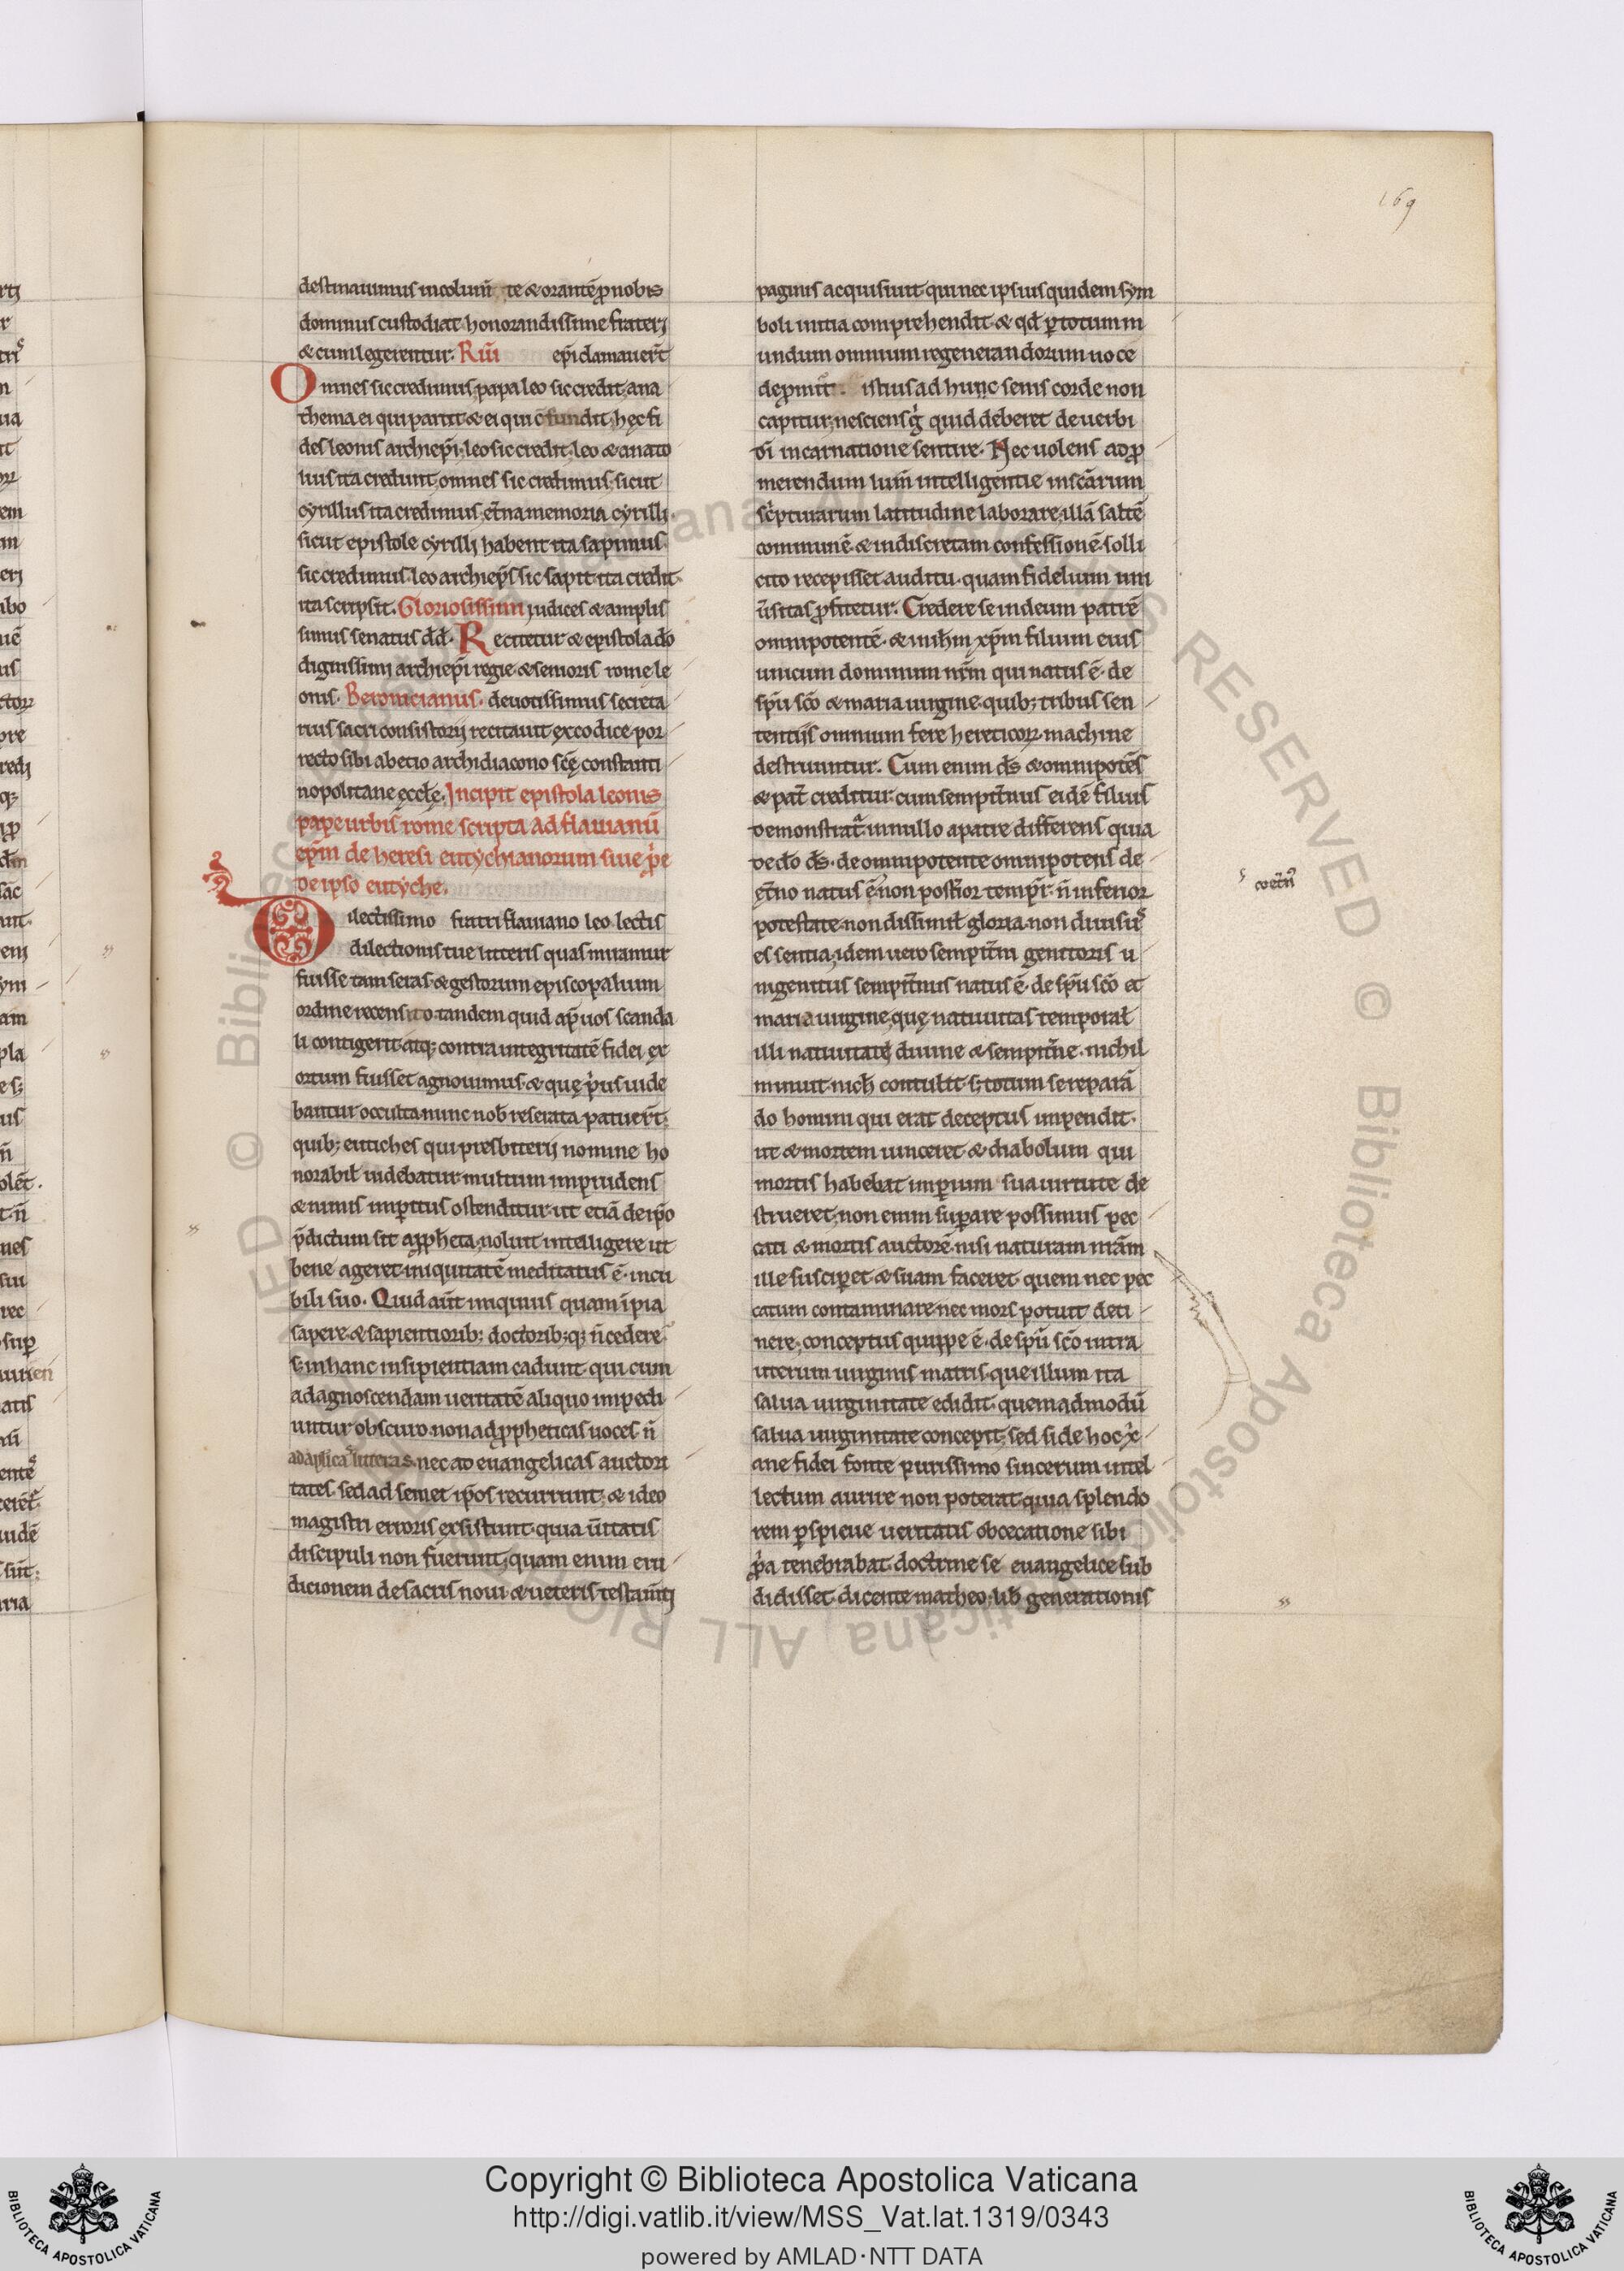 169
destinauimus incolum̄ te & orantē ꝓ nobis
dominus custodiat honorandissime frater;
& cum legerentur. Rm̄i ep̄i clamauer̄t
Omnes sic credimus, papa leo sic credit, ana
thema ei qui partit & ei qui cōfundit, hęc fi
des leonis archiep̄i, leo sic credit, leo & anato
lius ita credunt, omnes sic credimus, sicut
cyrillus ita credimus, et̄na memoria cyrilli.
sicut epistole cyrilli habent ita sapimus
sic credimus, leo archiep̄s sic sapit ita credit
ita scripsit. Gloriosissimi iudices & amplis
simus senatus dd̄. Recitetur & epistola do
dignissimi archiep̄i regie & senioris rome le
onis. Beronicianus. deuotissimus secreta
rius sacri consistorij recitauit ex codice por
recto sibi ab etio archidiacono scę̄ constanti
nopolitane ęccłę. Incipit epistola leonis
pape urbis rome scripta ad flauianū
ep̄m de heresi eutychianorum siue p̄e
de ipso eutyche.
Dilectissimo fratri flauiano leo. lectis
dilectionis tue litteris quas miramur
fuisse tam seras & gestorum episcopalium
ordine recensito tandem quid ap̄ uos scanda
li contigerit atq; contra integritatē fidei ex
ortum fuisset agnouimus & quę p̓us uide
bantur occulta nunc nob̄ reserata patuer̄t.
quib; eutiches qui presbiterij nomine ho
norabil̄ uidebatur multum imprudens
& nimis imꝑitus ostenditur ut etiā de ip̄o
p̄dictum sit a ꝓpheta, noluit intelligere ut
bene ageret iniquitatē meditatus ē. in cu
bili suo. Quid aūt iniquius quam īpia
sapere & sapientiorib; doctorib;q; n̄ cedere
s; in hanc insipientiam cadunt qui cum
ad agnoscendam ueritatē aliquo impedi
untur obscuro non ad ꝓpheticas uoces n̄
ad ap̄licas litteras nec ad euangelicas auctori
tates sed ad semet ip̄os recurrunt, & ideo
magistri erroris exsistunt quia ūitatis
discipuli non fuerunt, quam enim eru
dicionem de sacris noui & ueteris testam̄ti
paginis acquisiuit qui nec ipsius quidem sym
boli initia comprehendit & qd̄ ꝑ totum m
undum omnium regenerandorum uoce
depromit. istius ad hunc senis corde non
capitur, nesciens g̓ quid deberet de uerbi
dī incarnatione sentire. Nec uolens ad ꝓ
merendum lum̄ intelligentie in scārum
sc̓pturarum latitudine laborare, illā saltē
communē & indiscretam confessionē solli
cito recepisset auditu quam fidelium uni
ūsitas ꝓfitetur. Credere se in deum patrē
omnipotentē. & in ih̄m xp̄m filium eius
unicum dominum nr̄m qui natus ē. de
sp̄u sc̄o & maria uirgine. quib; tribus sen
tentijs omnium fere hereticoꝝ machine
destruuntur. Cum enim ds̄ & omnipotēs
& pat̄ creditur cum sempit̄nus eidē filius
demonstrat̓ in nullo a patre differens quia
de dō ds̄. de omnipotente omnipotens de
et̄no natus ē non post̄ior temp̄r. n̄ inferior
potestate non dissimil̄ gloria non diuisus
essentia, idem uero sempit̄ni genitoris u
nigenitus sempit̄nus natus ē. de sp̄u sc̄o et
maria uirgine, quę natiuitas temporal̄
illi natiuitati diuine & sempit̄ne. nichil
minuit nich̄ contulit s; totum se reparā
do homini qui erat deceptus impendit.
ut & mortem uinceret & diabolum qui
mortis habebat imꝑium sua uirtute de
strueret, non enim suꝑare possimus pec
cati & mortis auctorē nisi naturam nr̄am
ille susciꝑet & suam faceret quem nec pec
catum contaminare nec mors potuit deti
nere, conceptus quippe ē. de sp̄u sc̄o intra
uterum uirginis matris que illum ita
salua uirginitate edidit quemadmodū
salua uirginitate concepit, sed si de hoc x̓
ane fidei fonte purissimo sincerum intel
lectum aurire non poterat quia splendo
rem ꝑspicue ueritatis obcecatione sibi
p̓a tenebrabat doctrine se euangelice sub
didisset dicente matheo, lib̄ generationis
coet̄n̓
Copyright © Biblioteca Apostolica Vaticana
http://digi.vatlib.it/view/MSS_Vat.lat.1319/0343
powered by AMLAD·NTT DATA
BIBLIOTECA APOSTOLICA VATICANA
BIBLIOTECA APOSTOLICA VATICANA